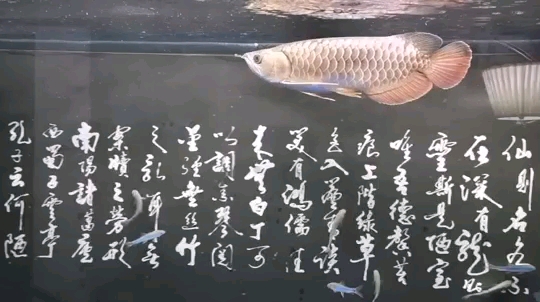 仙則名水不
在深有龍則
靈斯是陋室
唯吾德馨苔
痕上階綠草
色入簾青談
笑有鴻儒往
來無白丁可
以調素琴閱
金經無絲竹
之亂耳無
案牘之勞形
南陽諸葛廬
西蜀子雲亭
孔子云何陋